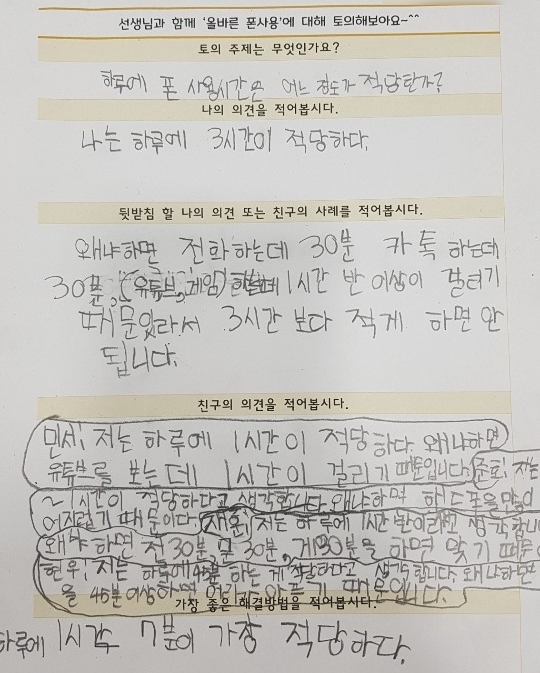 선생님과 함께 '올바른 폰사용'에 대해 토의해보아요~^^
토의 주제는 무엇인가요?
하루에 폰 사용시간은 어느 정도가 적당한가?
나의 의견을 적어봅시다.
나는 하루에 3시간이 적당하다.
뒷받침 할 나의 의견 또는 친구의 사례를 적어봅시다.
왜냐하면 전화하는데 30분 카톡 하는데
30분, (유튜브, 게임) 1시간 반 이상이 걸리기
3시간 보다 적게 하면 안
됩니다.
친구의 의견을 적어봅시다.
민서: 저는 하루에 1시간이 적당하다 왜냐하면
유튜브를 보는데 1시간이 걸리기 때문입니다. 준희: 저는
~1시간이 적당하다고 생각합니다. 왜냐하면 핸드폰을 많이
어지럽기 때문이다. 저는 하루에 1시간 반이라고 생각합니
왜냐하면 전 30분, 30분, 게 30분을 하면 맞기 때문
현우: 저는 하루에 45분 하는 게 생각합니다. 왜냐하면
을 45분 이상하면 때문입니다.
가장 좋은 해결방법을 적어봅시다.
하루에 1시간 7분이 가장 적당하다.